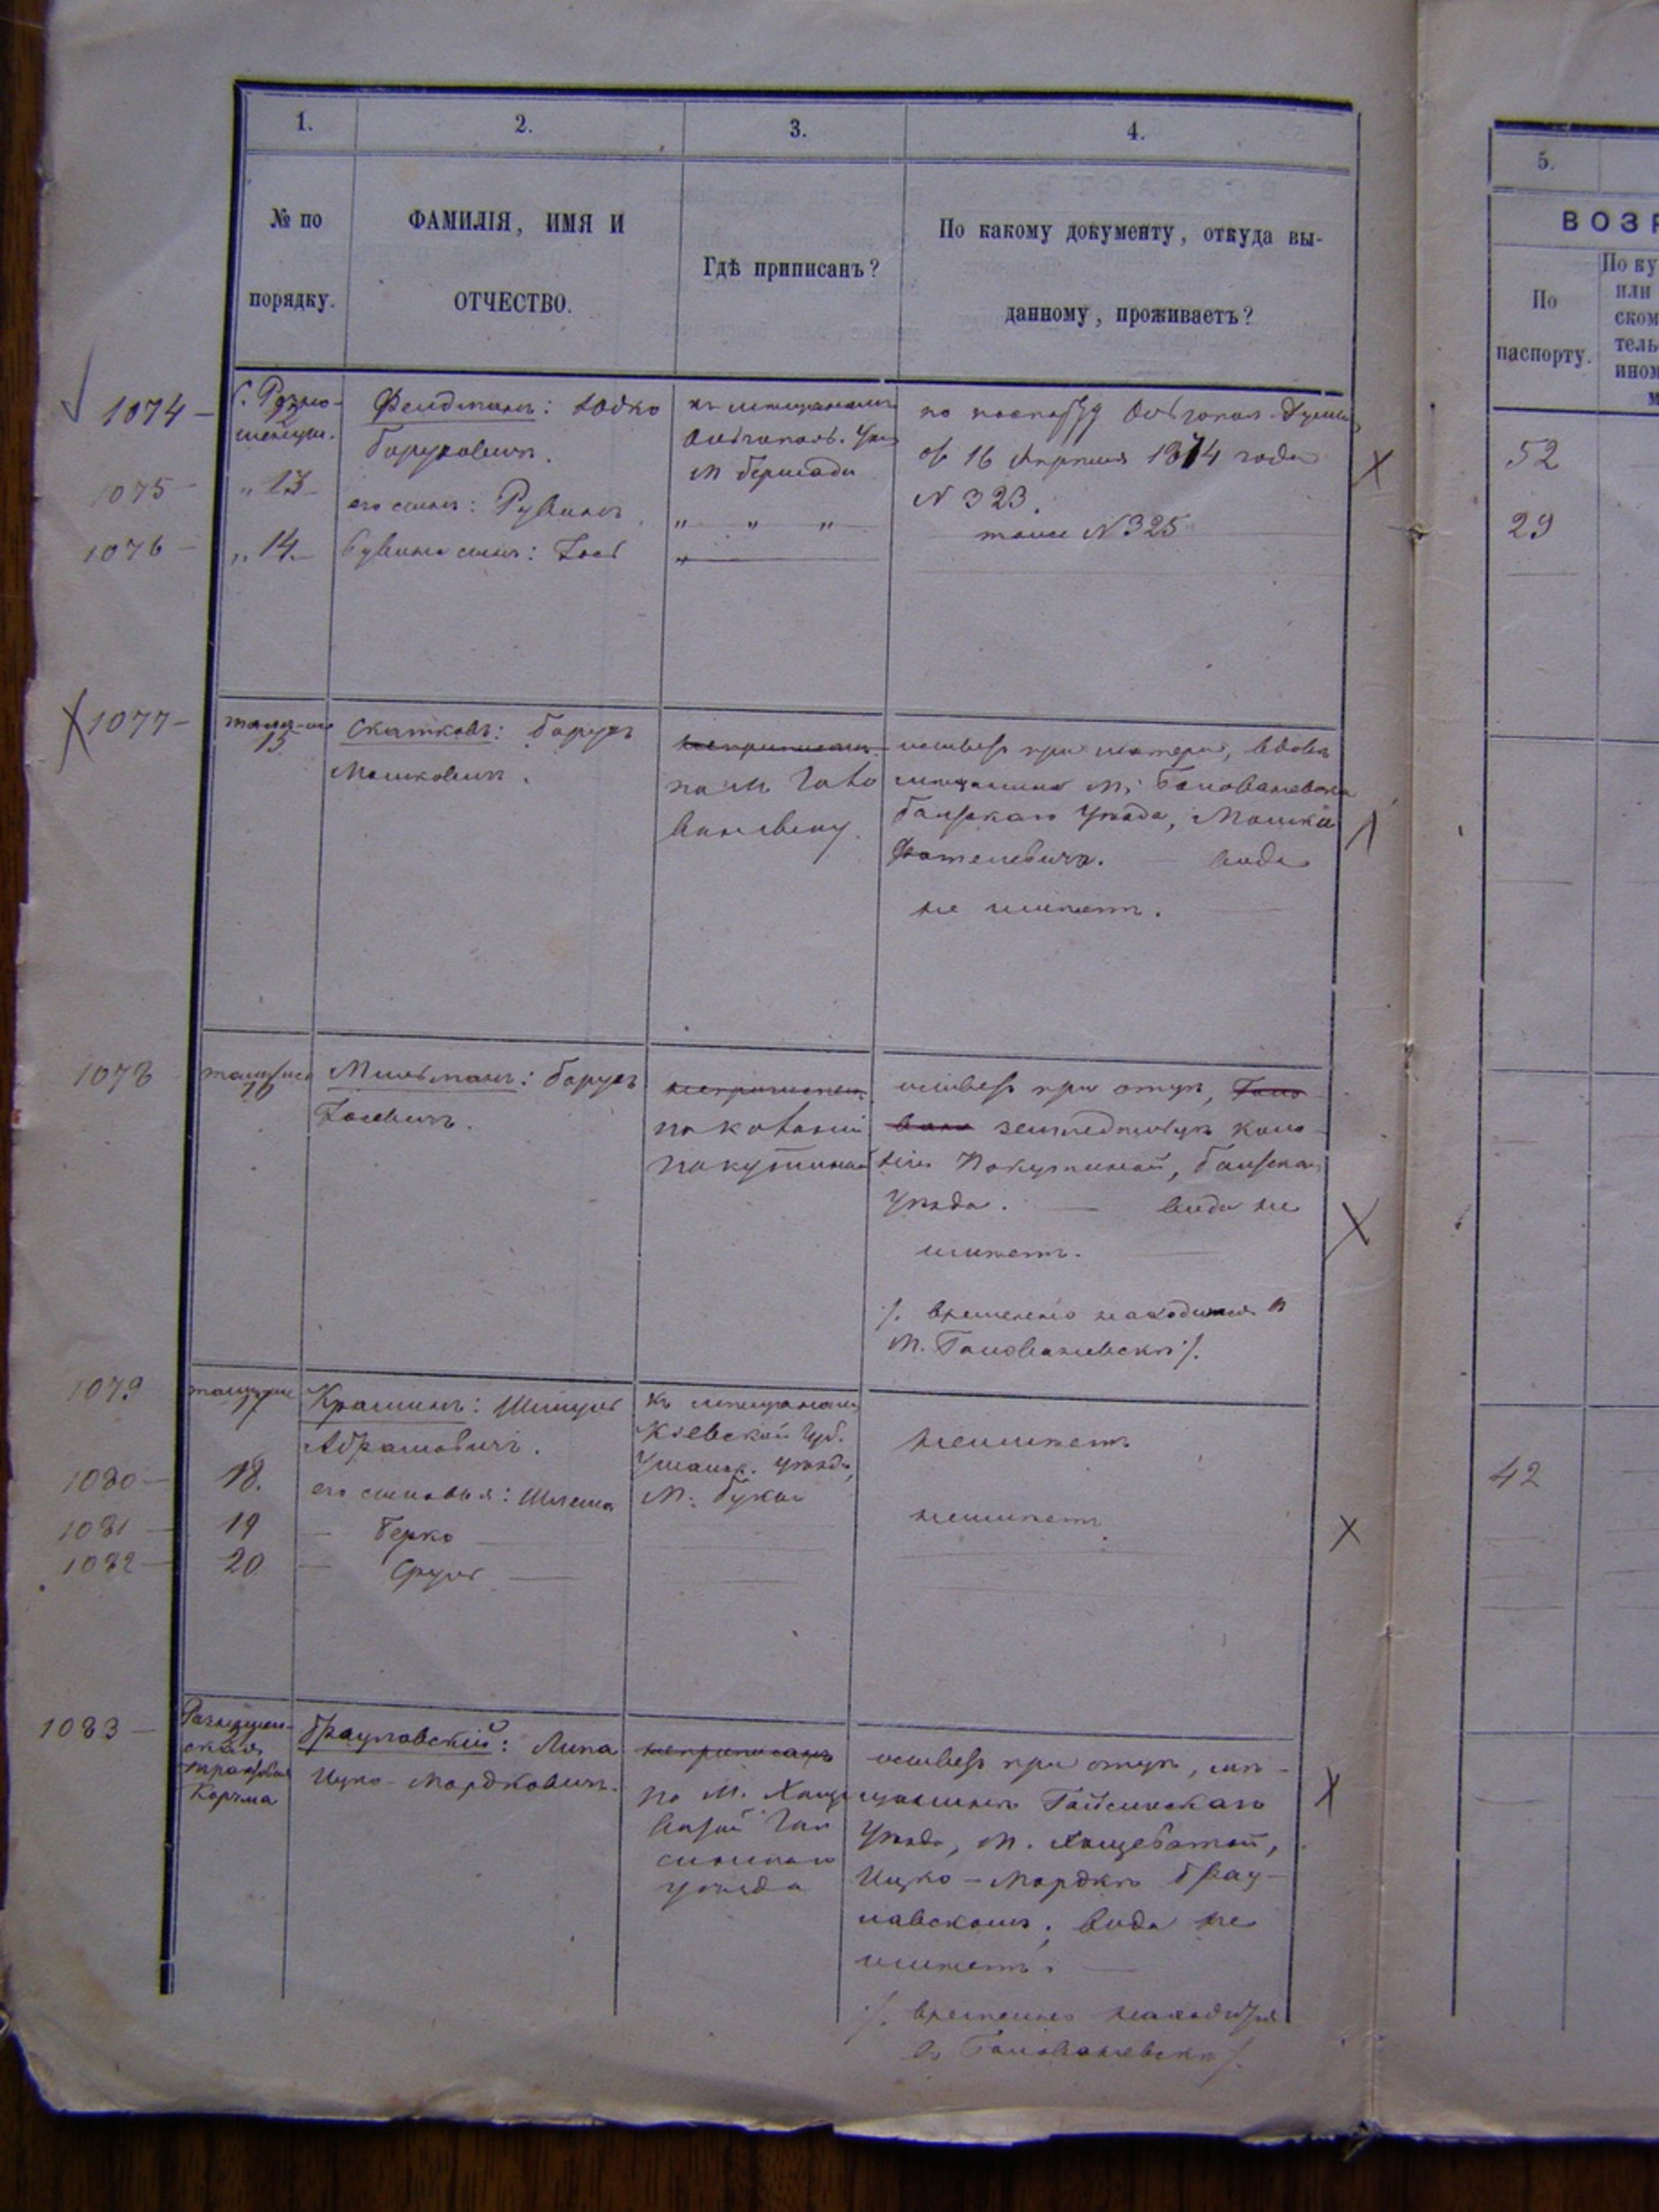 1.
2.
3.
4.
5.
№ по
порядку.
ФАМИЛІЯ, ИМЯ И
ОТЧЕСТВО.
Гдѣ приписанъ?
По какому документу, откуда вы-
данному, проживаетъ?
По
паспорту.
По ку
или
ском
тель
1074 —
Фельдманъ: Іодко
Боруховичъ.
къ мѣщанамъ
Ольгополь. Уѣз
М Бершади
по паспорту Ольгопол. Думы
отъ 16 Апрѣля 1874 года
N 323.
52
1075 —
„ 13 —
его сынъ: Рувинъ
„ „ „
тоже N 325
29
1076 —
„ 14 —
сынъ: Іось
„
1077 —
15
Скатковъ: Борухъ
Мошковичъ.
неприписанъ
по м. Голо
ваневску.
живетъ при матери, вдовѣ
мѣщанина М. Голованевска
Балтскаго Уѣзда, Мошка
вида
не имѣетъ.
1078
16
Мильманъ: Борухъ
Іосевичъ.
неприписанъ
по колоніи
Покутиной
живетъ при отцѣ, Голо
вано земледѣльцѣ коло-
ніи Покутиной, Балтскаго
Уѣзда. — вида не
имѣетъ.
/. временно находится въ
М. Голованевскѣ /.
1079
17
Крашинъ: Шмуль
Абрамовичъ.
къ мѣщанамъ
Кіевской Губ.
Уманск. уѣзда,
М. Буки
неимѣетъ
42
1080 —
18.
его сыновья: Шлема
неимѣетъ
1081 —
19
— Берко —
1082 —
20
— Сруль —
1083 —
ская
трактовая
Корчма
Брацлавскій: Липа
Ицко-Мордковичъ.
неприписанъ
по М. Хаще
ватой Гай
синскаго
уѣзда
живетъ при отцѣ, мѣ-
щанинѣ Гайсинскаго
Уѣзда, М. Хащеватой,
Ицко-Мордкѣ Брац-
лавскомъ; вида не
имѣетъ. —
/. временно находится
въ Голованевскѣ /.